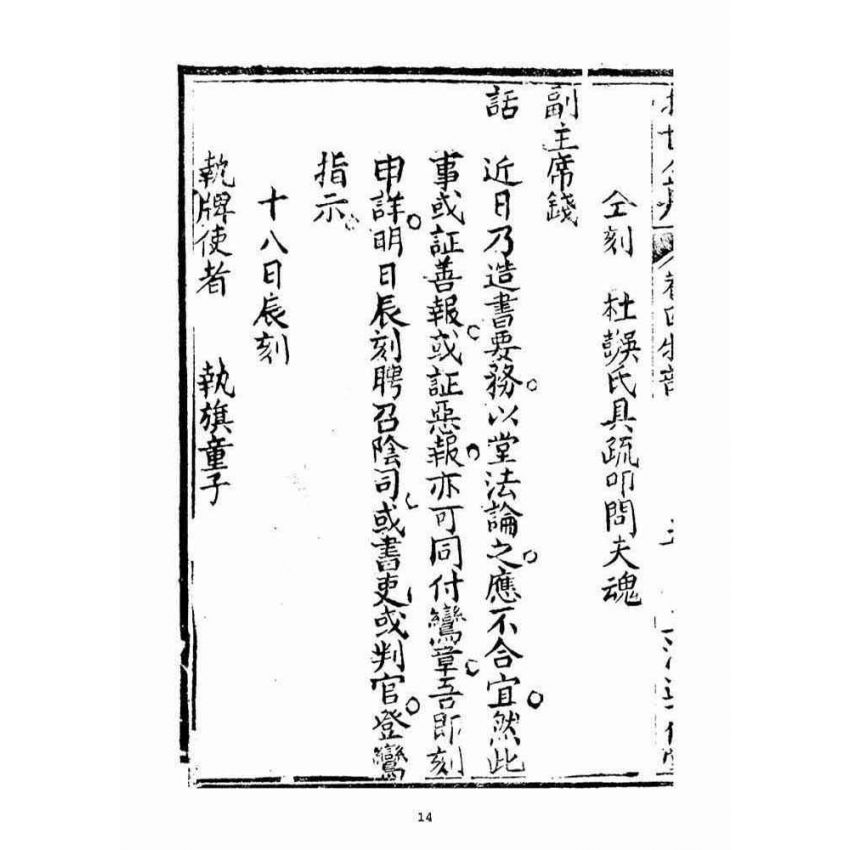 仝刻　杜彭吳氏具疏叩問夫魂
副主席錢
話　近日乃造書要務。以堂法論之。應不合宜。然此
事或証善報。或証惡報。亦可同付鸞章。吾即刻
申詳。明日辰刻聘召陰司。或書吏或判官。登鸞
指示。
十八日辰刻
執牌使者　執旗童子
14